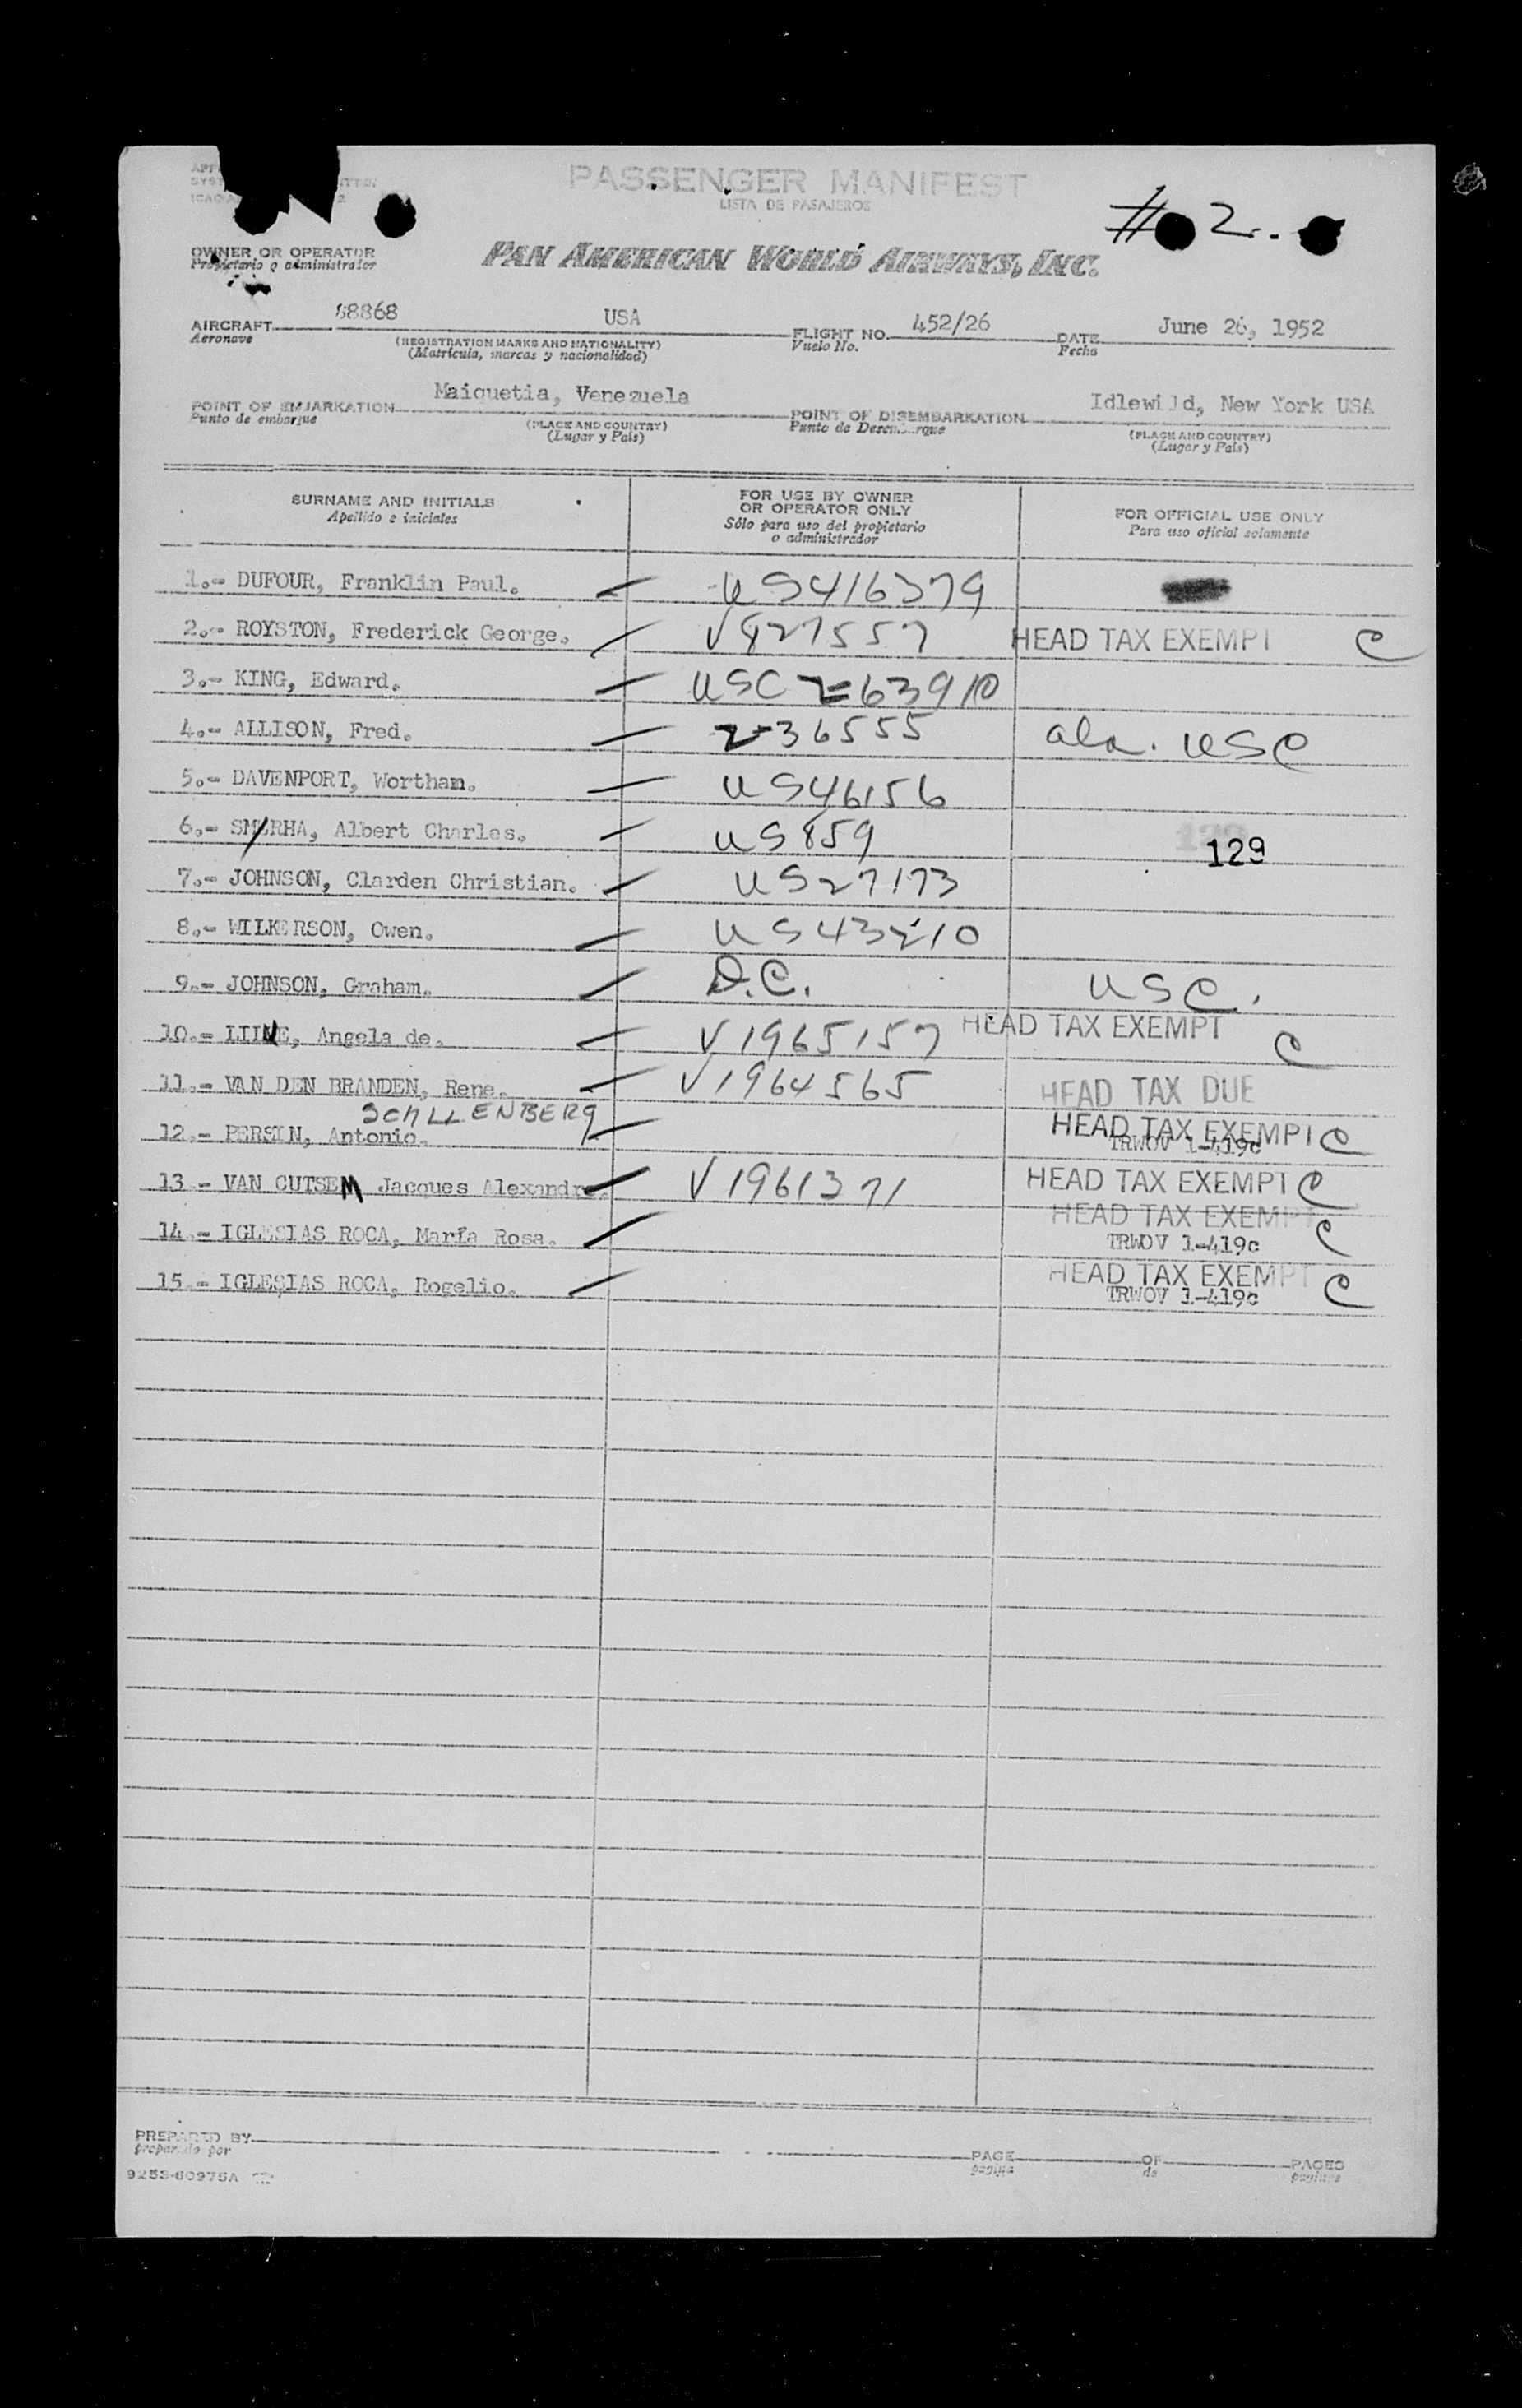 PASSENGER MANIFEST
LISTA DE PASAJEROS
# 2
OWNER OR OPERATOR
Propietario o administrador
PAN AMERICAN WORLD AIRWAYS, INC.
AIRCRAFT 88868 USA FLIGHT NO. 452/26 DATE June 26, 1952
Aeronave (REGISTRATION MARKS AND NATIONALITY) Vuelo No. Fecha
(Matrícula, marcas y nacionalidad)
POINT OF EMBARKATION Maiquetia, Venezuela POINT OF DISEMBARKATION Idlewild, New York USA
Punto de embarque (PLACE AND COUNTRY) Punto de Desembarque (PLACE AND COUNTRY)
(Lugar y País) (Lugar y País)
SURNAME AND INITIALS
Apellido e iniciales
FOR USE BY OWNER
OR OPERATOR ONLY
Sólo para uso del propietario
o administrador
FOR OFFICIAL USE ONLY
Para uso oficial solamente
1.- DUFOUR, Franklin Paul. US416379
2.- ROYSTON, Frederick George. V827557 HEAD TAX EXEMPT C
3.- KING, Edward. USC Z-63910
4.- ALLISON, Fred. Z-36555 ala. USC
5.- DAVENPORT, Wortham. US46156
6.- SMERHA, Albert Charles. US859 129
7.- JOHNSON, Clarden Christian. US27173
8.- WILKERSON, Owen.
9.- JOHNSON, Graham. D.C. USC.
10.- Angela de. V1965157 HEAD TAX EXEMPT C
11.- VAN DEN BRANDEN, Rene. V1964565 HEAD TAX DUE
SCHLLENBERG
12.- PERSIN, Antonio. HEAD TAX EXEMPT C
TRWOV 1-419c
13 - VAN CUTSEM Jacques Alexandre. V1961371 HEAD TAX EXEMPT C
HEAD TAX EXEMPT
14.- IGLESIAS ROCA, María Rosa. TRWOV 1-419c C
HEAD TAX EXEMPT
15.- IGLESIAS ROCA, Rogelio. TRWOV 1-419c C
PREPARED BY
preparado por
PAGE OF PAGES
pagina de paginas
9253-60975A